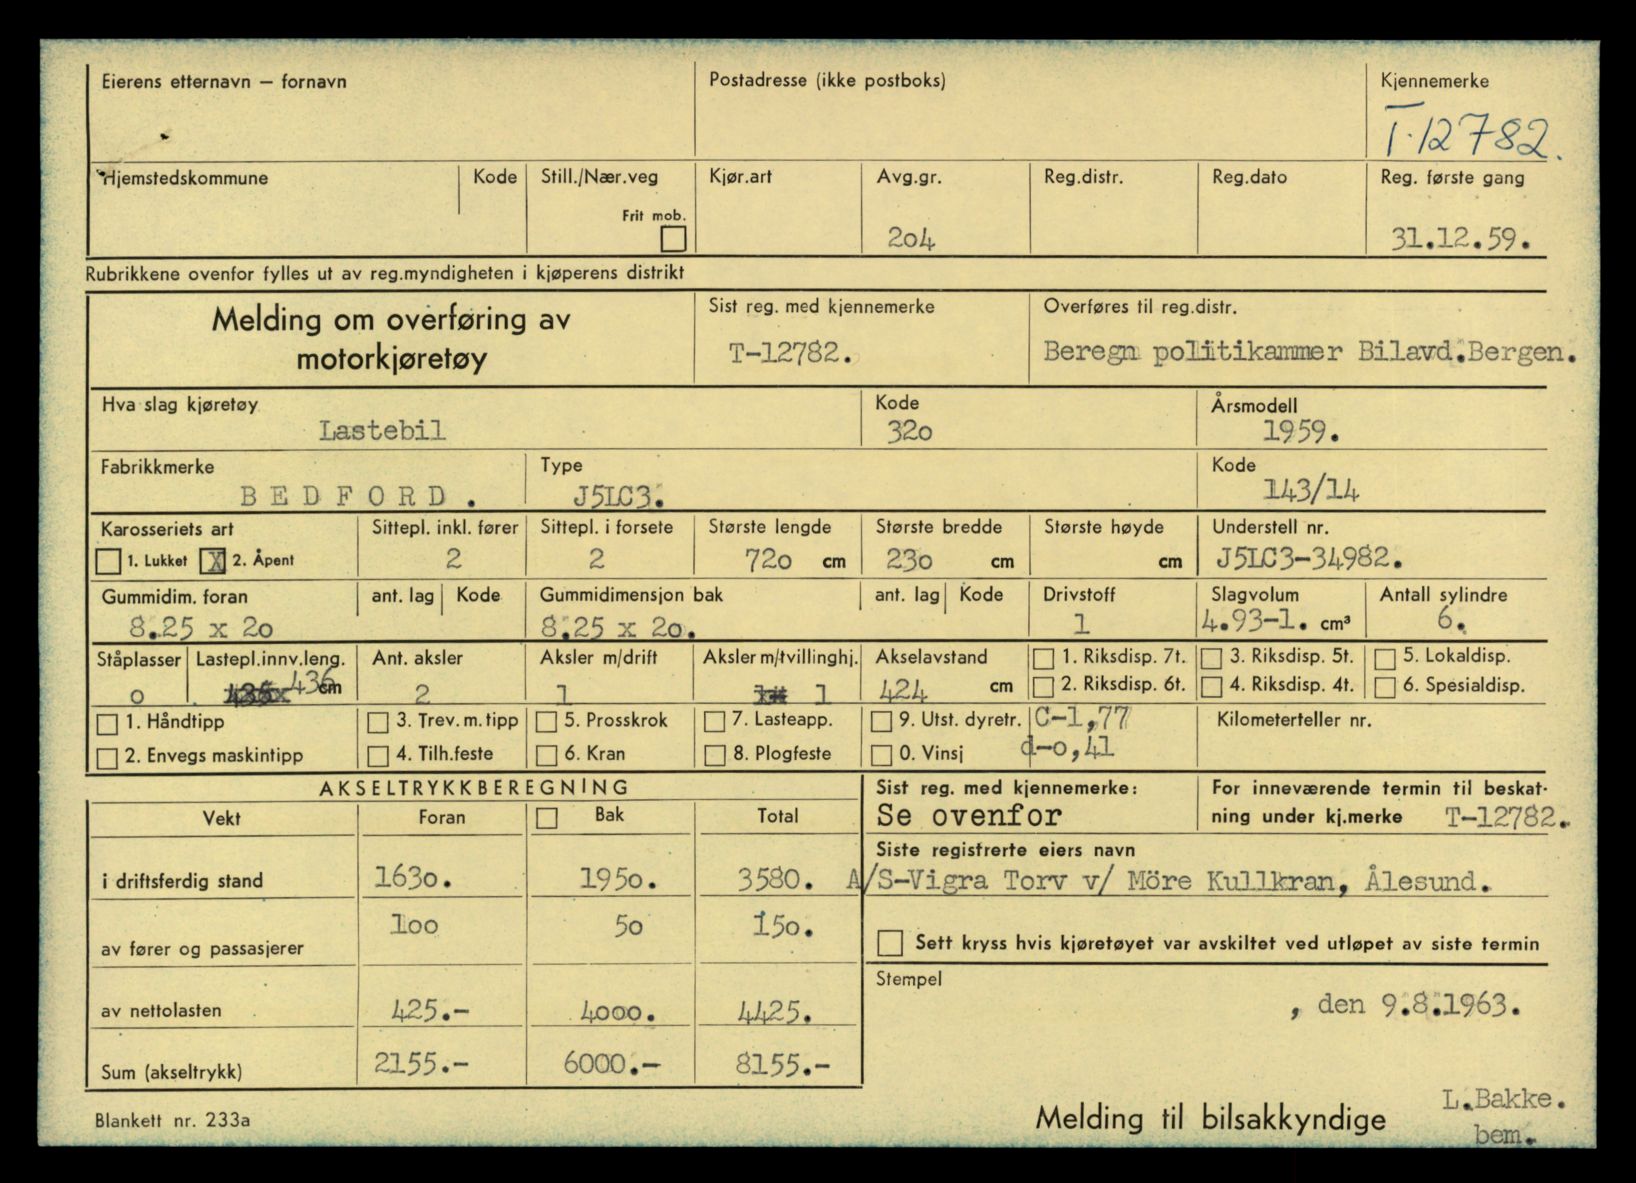 Eierens etternavn – fornavn
Postadresse (ikke postboks)
Kjennemerke
T-12782.
Hjemstedskommune
Kode
Still./Nær.veg
Frit mob.
Kjør.art
Avg.gr.
204
Reg.distr.
Reg.dato
Reg. første gang
31.12.59.
Rubrikkene ovenfor fylles ut av reg.myndigheten i kjøperens distrikt
Melding om overføring av
motorkjøretøy
Sist reg. med kjennemerke
T-12782.
Overføres til reg.distr.
Beregn politikammer Bilavd.Bergen.
Hva slag kjøretøy
Lastebil
Kode
320
Årsmodell
1959.
Fabrikkmerke
BEDFORD.
Type
J5LC3.
Kode
143/14
Karosseriets art
1. Lukket X 2. Åpent
Sittepl. inkl. fører
2
Sittepl. i forsete
2
Største lengde
720 cm
Største bredde
230 cm
Største høyde
cm
Understell nr.
J5LC3-34982.
Gummidim. foran
8.25 x 20
ant. lag
Kode
Gummidimensjon bak
8.25 x 20.
ant. lag
Kode
Drivstoff
1
Slagvolum
4.93-l. cm³
Antall sylindre
6.
Ståplasser
0
Lastepl.innv.leng.
436 cm
Ant. aksler
2
Aksler m/drift
1
Aksler m/tvillinghj.
1
Akselavstand
424 cm
1. Riksdisp. 7t.
2. Riksdisp. 6t.
3. Riksdisp. 5t.
4. Riksdisp. 4t.
5. Lokaldisp.
6. Spesialdisp.
1. Håndtipp
2. Envegs maskintipp
3. Trev. m. tipp
4. Tilh.feste
5. Prosskrok
6. Kran
7. Lasteapp.
8. Plogfeste
9. Utst. dyretr.
0. Vinsj
C-1,77
d-0,41
Kilometerteller nr.
AKSELTRYKKBEREGNING
Vekt
Foran
Bak
Total
i driftsferdig stand
1630.
1950.
3580.
av fører og passasjerer
100
50
150.
av nettolasten
425.-
4000.
4425.
Sum (akseltrykk)
2155.-
6000.-
8155.-
Sist reg. med kjennemerke:
Se ovenfor
For inneværende termin til beskat-
ning under kj.merke T-12782.
Siste registrerte eiers navn
A/S-Vigra Torv v/ Möre Kullkran, Ålesund.
Sett kryss hvis kjøretøyet var avskiltet ved utløpet av siste termin
Stempel
, den 9.8.1963.
Blankett nr. 233a
Melding til bilsakkyndige
L.Bakke.
bem.